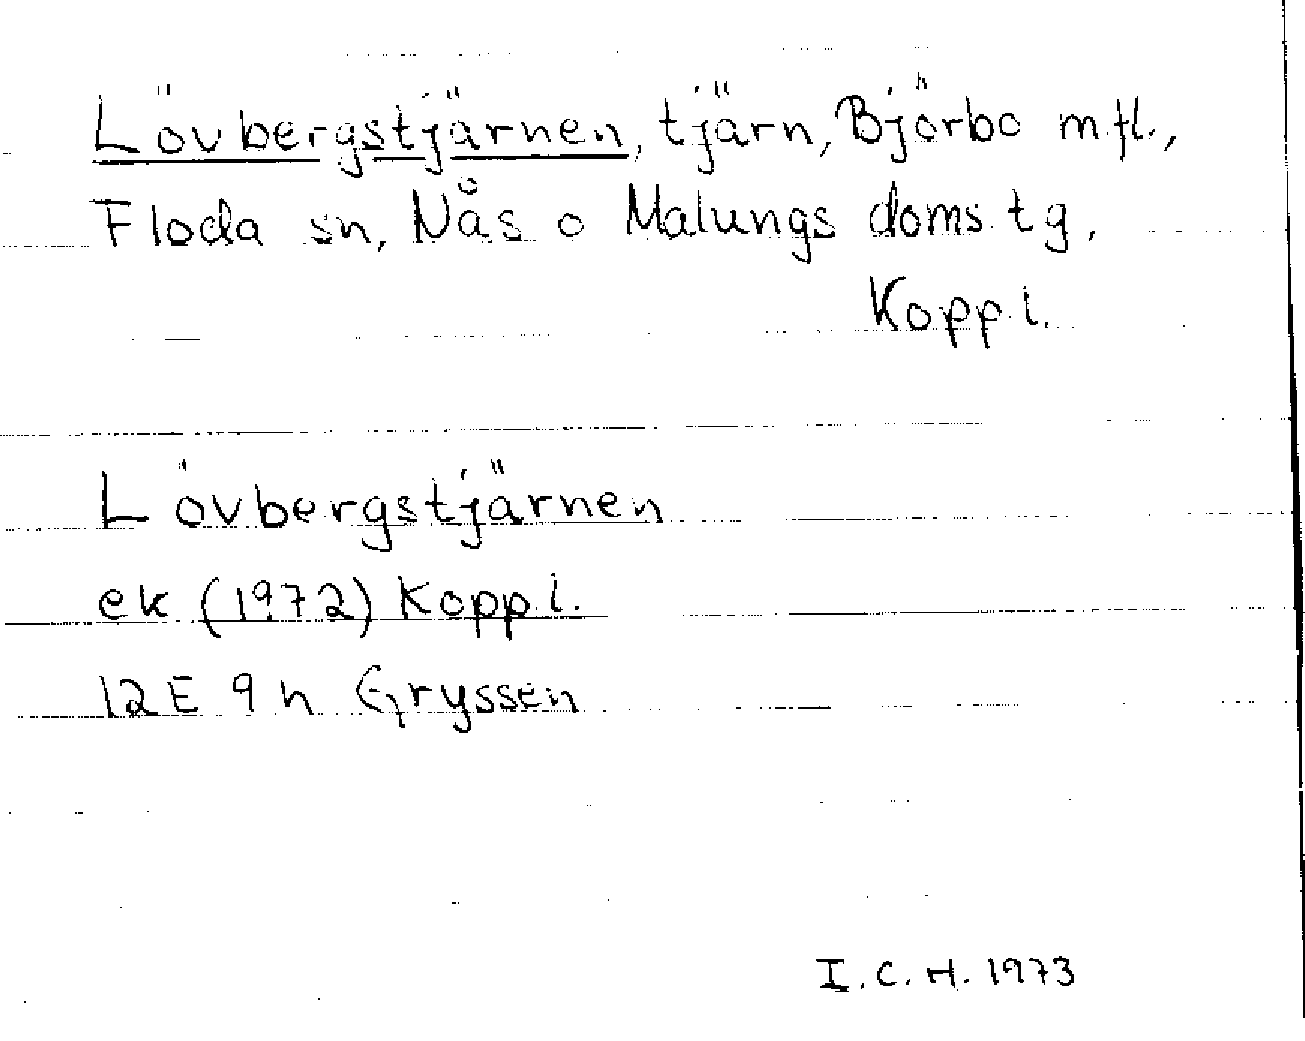 Lövbergstjärnen, tjärn, Björbo m fl.,
Floda sn, Nås o Malungs doms. tg.
Kopp l.
Lövbergstjärnen
ek (1972) Kopp l.
12E 9 h Gryssen
I.C.H. 1973